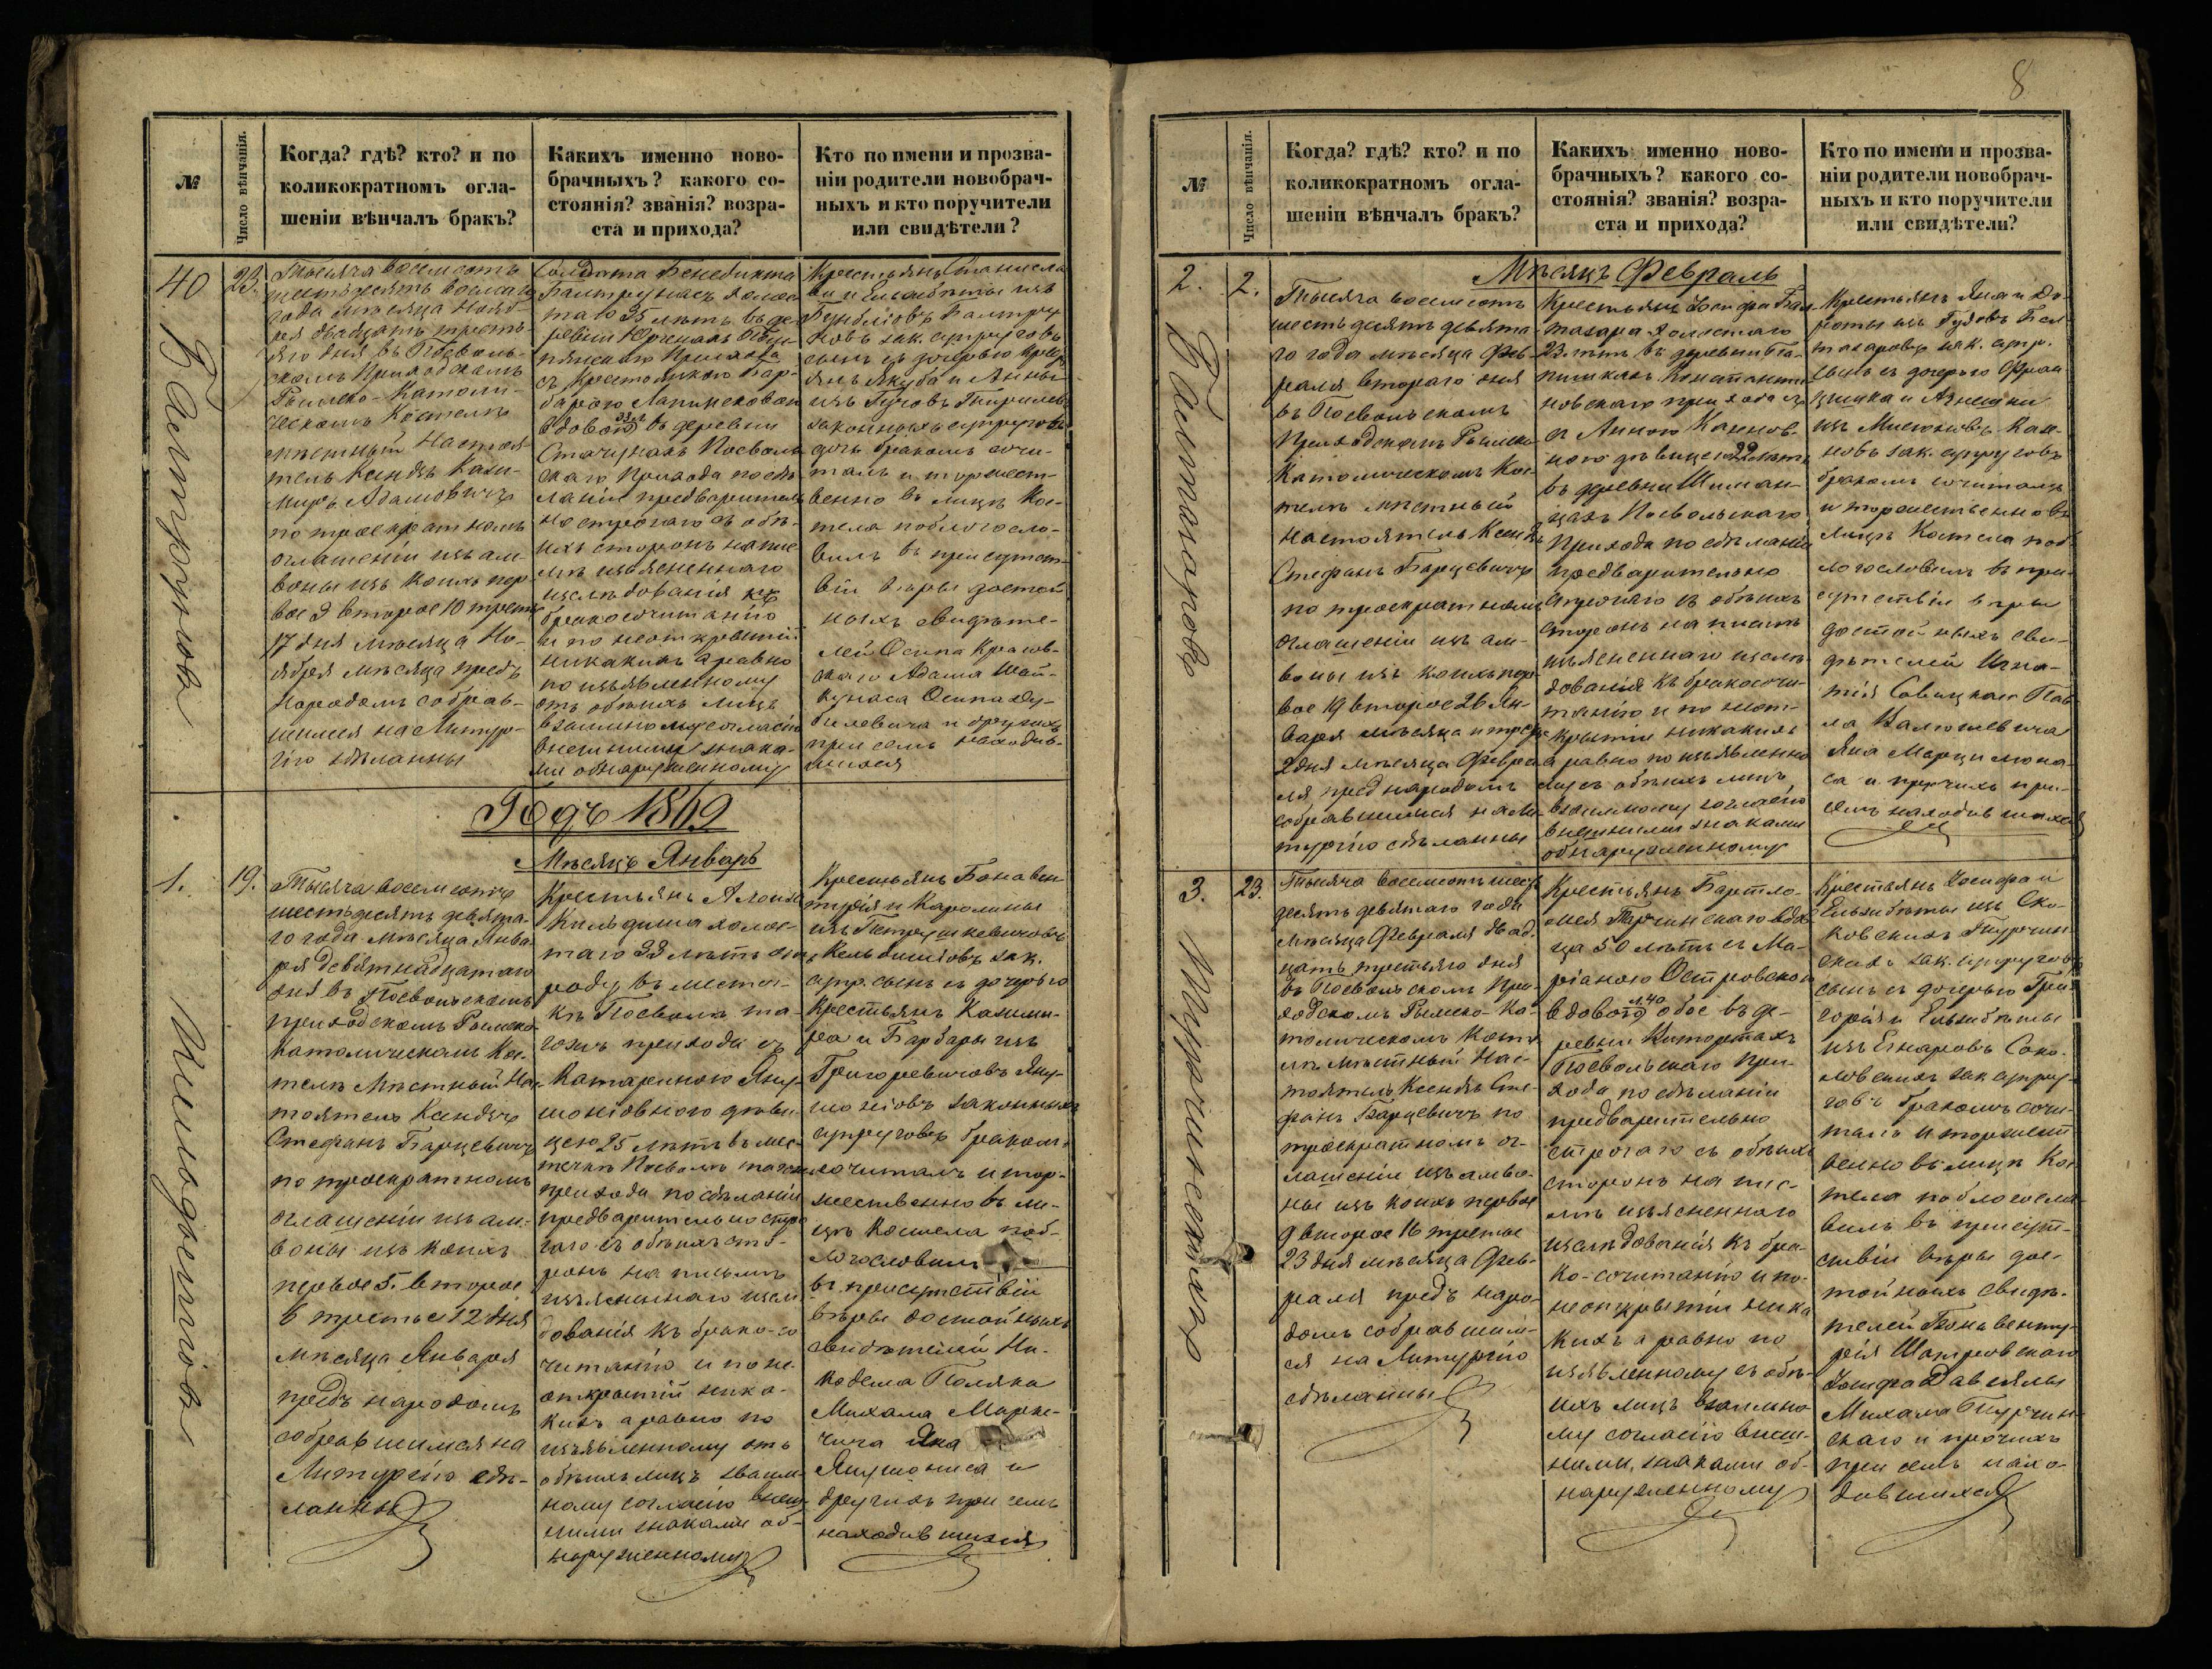 8
№
Число вѣнчанія.
Когда? гдѣ? кто? и по
коликократномъ огла-
шеніи вѣнчалъ бракъ?
Какихъ именно ново-
брачныхъ? какого со-
стоянія? званія? возра-
ста и прихода?
Кто по имени и прозва-
ніи родители новобрач-
ныхъ и кто поручители
или свидѣтели?
40
23.
Тысяча восемсотъ
шестьдесятъ восьмаго
года мѣсяца Нояб-
ря двадцать треть-
яго дня въ Посволь-
скомъ Приходскомъ
Римско-Католи-
ческомъ Костелѣ
мѣстный Настоя-
тель Ксендзъ Кази-
миръ Адамовичъ
по троекратномъ
оглашеніи изъ ам-
воны изъ коихъ пер
вое 3 второе 10 третье
17 дня мѣсяца Но-
ября мѣсяца предъ
народомъ собрав-
шимся на Литур-
гію сдѣланны
Солдата Бенедикта
35 лѣтъ въ де-
ревни
Прихода
съ Крестьянкою Вар-
барою
вдовою въ деревни
Посволь
скаго Прихода по сдѣ
ланіи предваритель
но строгаго съ обѣ-
ихъ сторонъ на пис
мѣ изъясненнаго
изслѣдованія къ
бракосочитанію
и по неоткрытіи
никакихъ а равно
по изъявленному
отъ обѣихъ лицъ
взаимному согласію
внешними знака-
ми обнаруженному
Крестьянъ Станисла
ва и Ельзбѣты изъ
зак. супруговъ
сынъ съ дочерью крес
янъ Якуба и Анны
законныхъ супруговъ
дочь бракомъ сочи-
талъ и торжест-
венно въ лицѣ Кос-
тела поблагосло-
вилъ въ присутст-
віи вѣры достой
ныхъ свидѣте-
лей Осипа Красов-
скаго Адама Шай-
кунаса Осипа Ду-
билевича и другихъ
при семъ находив-
шихся
Годъ 1869
Мѣсяцъ Январь
1.
19.
Тысяча восемсотъ
шестьдесятъ девята-
го года мѣсяца Янва
ря девятнадцатаго
дня въ Посвольскомъ
приходскомъ Римско
Католическомъ Кос-
телѣ Мѣстный На-
стоятель Ксендзъ
Стефанъ Барцевичъ
по троекратномъ
оглашеніи изъ ам-
воны изъ коихъ
первое 5. второе
6 третье 12 дня
мѣсяца Января
предъ народомъ
собравшимся на
Литургію сдѣ-
ланны
Крестьянъ
холос-
таго 33 лѣтъ отъ
роду въ местеч-
кѣ Посволь та-
гожъ прихода съ
Катариною Яну-
шоніовною дѣви
цею 25 лѣтъ въ мес-
течкѣ Посволь тагожъ
прихода по сдѣланіи
предварительно стро
гаго съ обѣихъ сто-
ронъ на письмѣ
изъясненнаго изслѣ
дованія къ брако-со
читанію и по не-
открытіи ника-
кихъ а равно по
изъявленному отъ
обѣихъ лицъ взаим-
ному согласію внеш
ними знаками об-
наруженному
Крестьянъ Бонавен
турія и Каролины
изъ Петрушкевичовъ
зак.
супр. сынъ съ дочерью
Крестьянъ Казими-
ра и Барбары изъ
Григоревичовъ Яну-
шоніовъ законныхъ
супруговъ бракомъ
сочиталъ и тор-
жественно въ ли-
цѣ Костела поб-
лагословилъ
въ присутствіи
вѣры достойныхъ
свидѣтелей Ни-
кодема Поляка
Михала Марке-
Яна
Янушониса и
другихъ при семъ
находившихся
№
Число вѣнчанія.
Когда? гдѣ? кто? и по
коликократномъ огла-
шеніи вѣнчалъ бракъ?
Какихъ именно ново-
брачныхъ? какого со-
стоянія? званія? возра-
ста и прихода?
Кто по имени и прозва-
ніи родители новобрач-
ныхъ и кто поручители
или свидѣтели?
Мѣсяцъ Февраль
2.
2.
Тысяча восемсотъ
шестьдесятъ девята-
го года мѣсяца Фев-
раля втораго дня
въ Посвольскомъ
Приходскомъ Римско
Католическомъ Кос-
телѣ мѣстный
Настоятель Ксендзъ
Стефанъ Барцевичъ
по троекратномъ
оглашеніи изъ ам-
воны изъ коихъ пер-
вое 19 второе 26 Ян-
варя мѣсяца и третье
2 дня мѣсяца Февра
ля предъ народомъ
собравшимся на Ли
тургію сдѣланны
Крестьянъ Іосифа Бал-
тазара холостаго
23 лѣтъ въ деревни
Константи
новскаго прихода
съ Анною
ною дѣвицею 22 лѣтъ
въ деревни Шиман-
цахъ Посвольскаго
Прихода по сдѣланіи
предварительно
строгаго съ обѣихъ
сторонъ на письмѣ
изъясненнаго изслѣ
дованія къ бракосочи-
танію и по неот-
крытіи никакихъ
а равно по изъявленно
му съ обѣихъ лицъ
взаимному согласію
внешними знаками
обнаруженному
Крестьянъ Яна и До-
роты изъ Гудовъ Бал
тазаровъ зак. супр.
сынъ съ дочерью Фран
цишка и Агнешки
зак. супруговъ
бракомъ сочиталъ
и торжественно въ
лицѣ Костела поб-
лагословилъ въ при-
сутствіи вѣры
достойныхъ сви-
дѣтелей Игна-
тія Савицкаго Пав-
ла Валюшевича
Яна Марцинкона-
са и прочихъ при
семъ находившихся
3.
23.
Тысяча восемсотъ шест
десятъ девятаго года
Мѣсяца Февраля двад
цать третьяго дня
въ Посвольскомъ При-
ходскомъ Римско-Ка-
толическомъ Косте
лѣ Мѣстный Нас-
тоятель Ксендзъ Сте-
фанъ Барцевичъ по
троекратномъ ог-
лашеніи изъ амво-
ны изъ коихъ первое
9 второе 16 третье
23 дня мѣсяца Фев-
раля предъ наро-
домъ собравшим-
ся на Литургію
сдѣланны
Крестьянъ Бартло-
мея Турчинскаго вдов
ца 50 лѣтъ съ Ма-
ріаною Островскою
вдовою л. 40 обое въ де-
ревни
Посвольскаго При
хода по сдѣланіи
предварительно
строгаго съ обѣихъ
сторонъ на пис-
мѣ изъясненнаго
изслѣдованія къ бра-
ко-сочитанію и по-
неоткрытіи ника
кихъ а равно по
изъявленному съ обѣ-
ихъ лицъ взаимно
му согласію внеш-
ними знаками об-
наруженному
Крестьянъ Іосифа и
Ельзбѣты изъ Ско-
ковскихъ Турчин
скихъ зак. супруговъ
сынъ съ дочерью Гри-
горія и Ельзбѣты
Соко-
ловскихъ зак. супру-
говъ бракомъ сочи-
талъ и торжест
венно въ лицѣ Кос
тела поблагосло-
вилъ въ присут-
ствіи вѣры дос-
тойныхъ свидѣ-
телей Бонавенту-
рія
Іосифа
Михала Турчин-
скаго и прочихъ
при семъ нахо-
дившихся